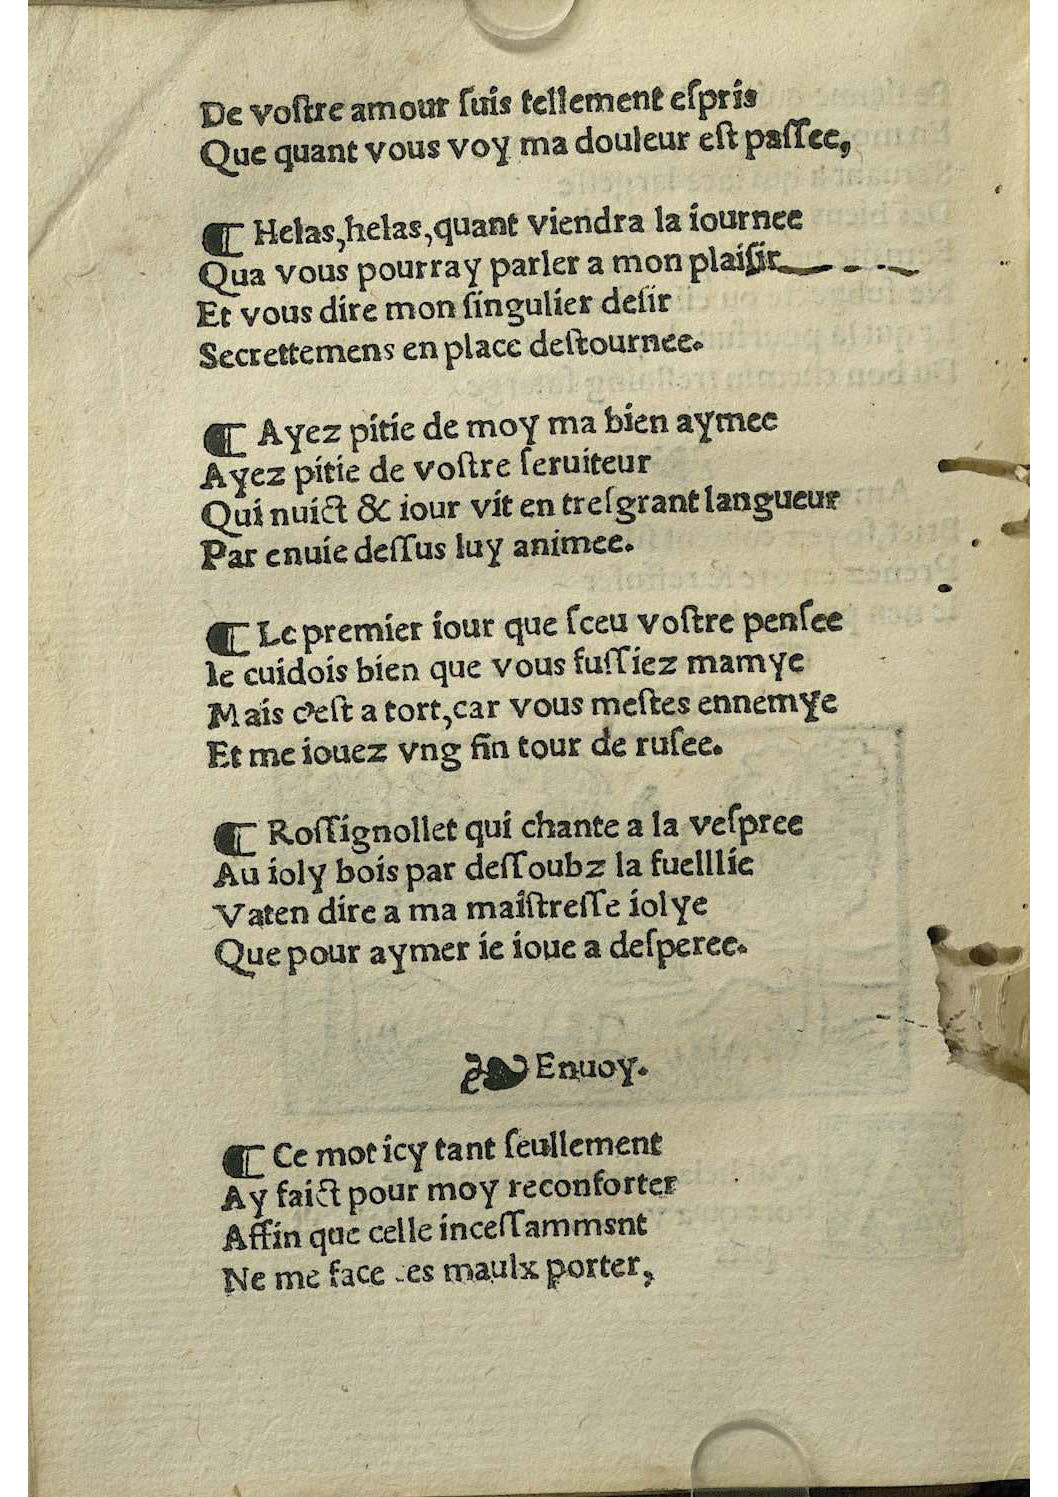 De voſtre amour ſuis tellement eſpris
Que quant vous voy ma douleur eſt paſſee,
¶ Helas,helas,quant viendra la iournee
Qua vous pourray parler a mon plaiſir
Et vous dire mon ſingulier deſir
Secrettemens en place deſtournee.
¶ Ayez pitie de moy ma bien aymee
Ayez pitie de voſtre ſeruiteur
Qui nuict & iour vit en treſgrant langueur
Par enuie deſſus luy animee.
¶ Le premier iour que ſceu voſtre penſee
Ie cuidois bien que vous fuſſiez mamye
Mais c'eſt a tort,car vous meſtes ennemye
Et me iouez vng fin tour de ruſee.
¶ Roſſignollet qui chante a la veſpree
Au ioly bois par deſſoubz la fuelllie
Vaten dire a ma maiſtreſſe iolye
Que pour aymer ie ioue a deſperee.
❧ Enuoy.
¶ Ce mot icy tant ſeullement
Ay faict pour moy reconforter
Affin que celle inceſſammsnt
Ne me face es maulx porter,